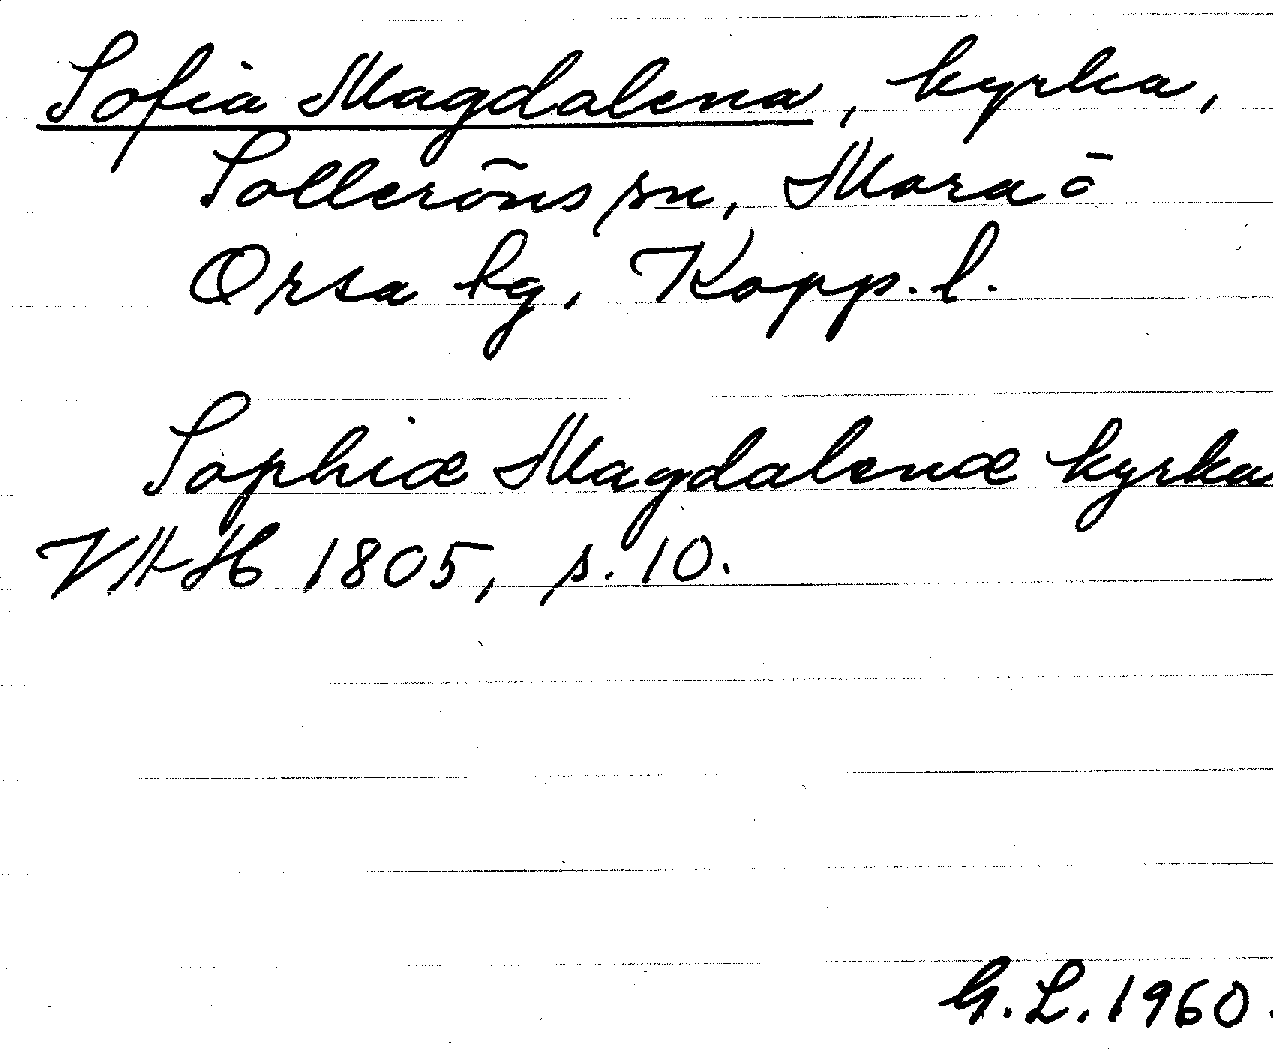 Sofia Magdalena, kyrka,
Solleröns sn, Mora o
Orsa tg, Kopp. l.
Sophiæ Magdalenæ kyrka
VAH 1805, s. 10.
G. L. 1960.